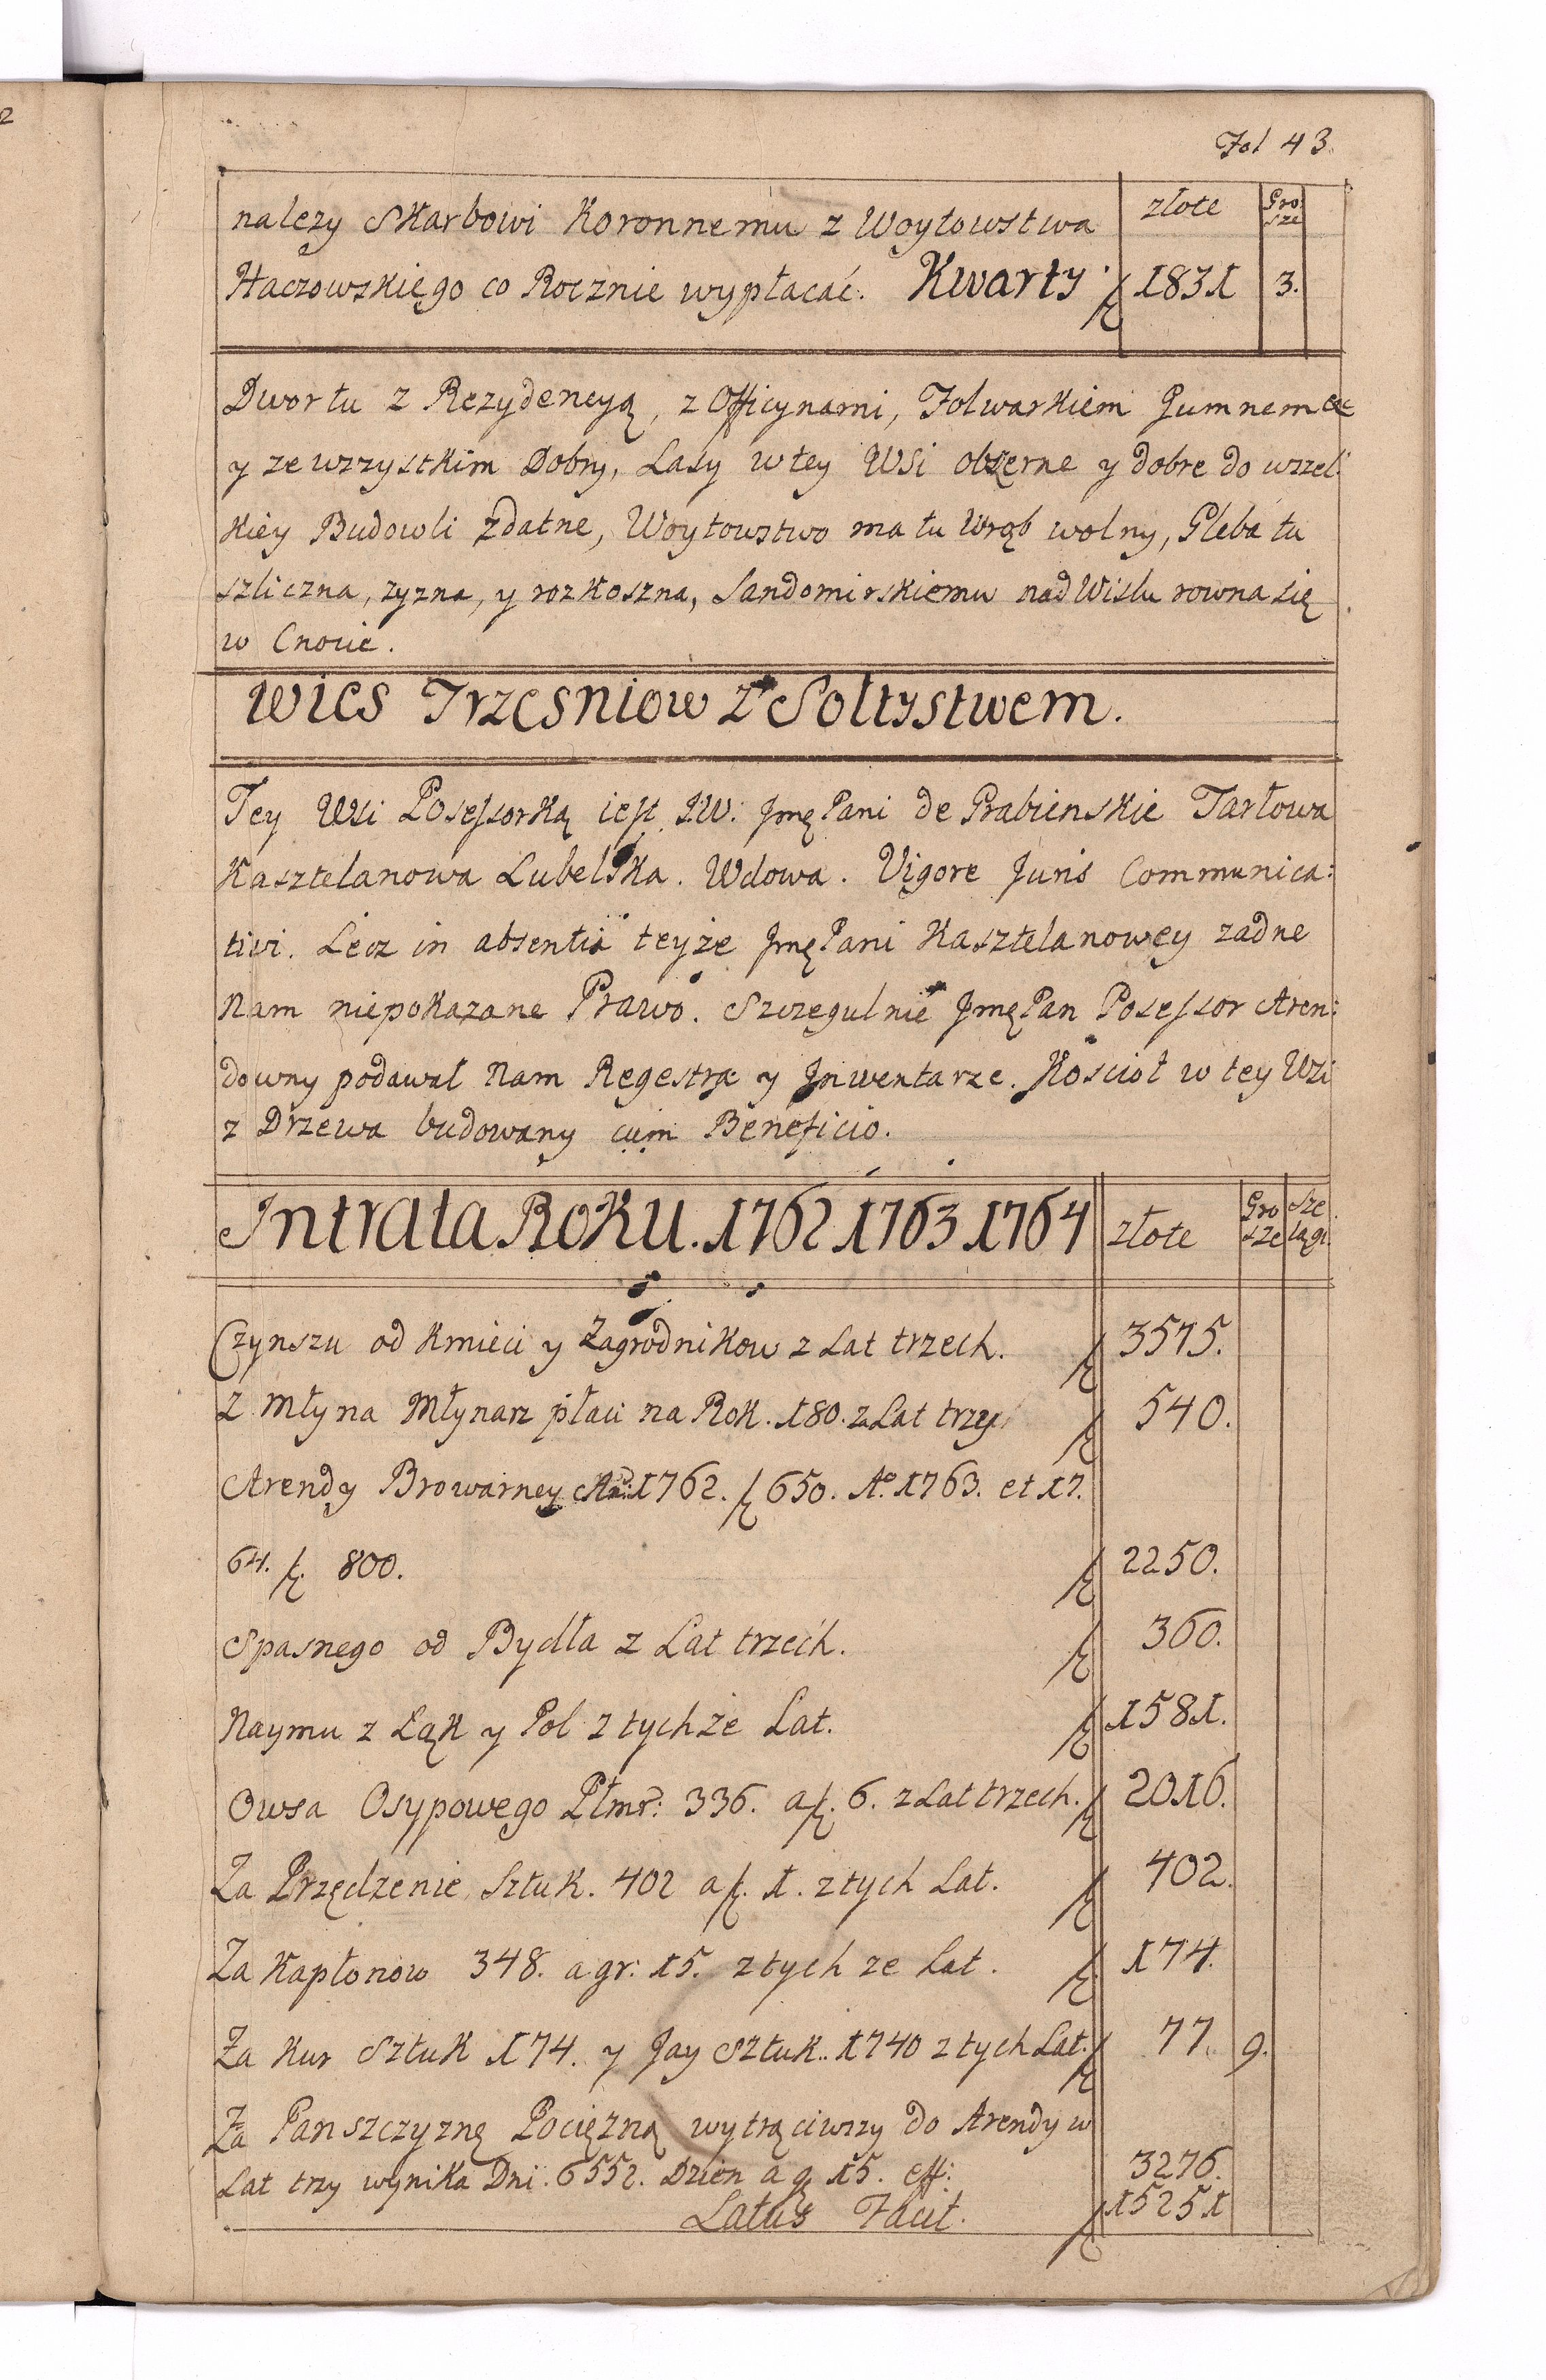 2
Fol 43.
należy Skarbowi Koronnemu z Woytowstwa złote Gro: sze
Haczowskiego co Rocznie wypłacać. Kwarty ƒ 1831 3.
Dwor tu z Rezydencyą, z Officynami, Folwarkiem Gumnem &c
y ze wszystkim Dobry, Lasy w tey Wsi obszerne y dobre do wszel:
kiey Budowli zdatne, Woytowstwo ma tu Wrąb wolny, Gleba tu
szliczna, zyzna, y rozkoszna, Sandomirskiemu nad Wisłu rowna się
w Cnocie.
Wies Trzesniow z Soltystwem.
Tey Wsi Posessorką iest J.W. Jmę Pani de Grabienskie Tarłowa
Kasztelanowa Lubelska. Wdowa. Vigore Juris Communica:
tivi. Lecz in absentia teyże Jmę Pani Kasztelanowey zadne
Nam niepokazane Prawo. Szczegulnie Jmę Pan Posessor Aren:
downy podawał Nam Regestra y Inwentarze. Kosciół w tey Wsi
z Drzewa budowany cum Beneficio.
Intrata Roku. 1762 1763 1764 złote Gro sze Sze lągi
Czynszu od Kmieci y Zagrodnikow z Lat trzech. ƒ 3575.
Z Młyna Młynarz płaci na Rok. 180. za Lat trzy. ƒ 540.
Arendy Browarney Aº: 1762. ƒ 650. Aº. 1763. et 17.
64. ƒ. 800. ƒ 2250.
Spasnego od Bydła z Lat trzech. ƒ 360.
Naymu z Łąk y Pol z tychże Lat. ƒ 1581.
Owsa Osypowego Płmr: 336. a ƒ. 6. z Lat trzech. ƒ 2016.
Za Przędzenie Sztuk. 402 a ƒ. 1. z tych Lat. ƒ 402.
Za Kapłonow 348. a gr: 15. z tych ze Lat. ƒ 174.
Za Kur Sztuk 174. y Jay Sztuk.. 1740 z tych Lat. ƒ 77. 9.
Za Panszczyznę Pociężną wytrąciwszy do Arendy w
Lat trzy wynika Dni. 6552. Dzien a g 15. eff: 3276.
Latus Facit. ƒ 15251